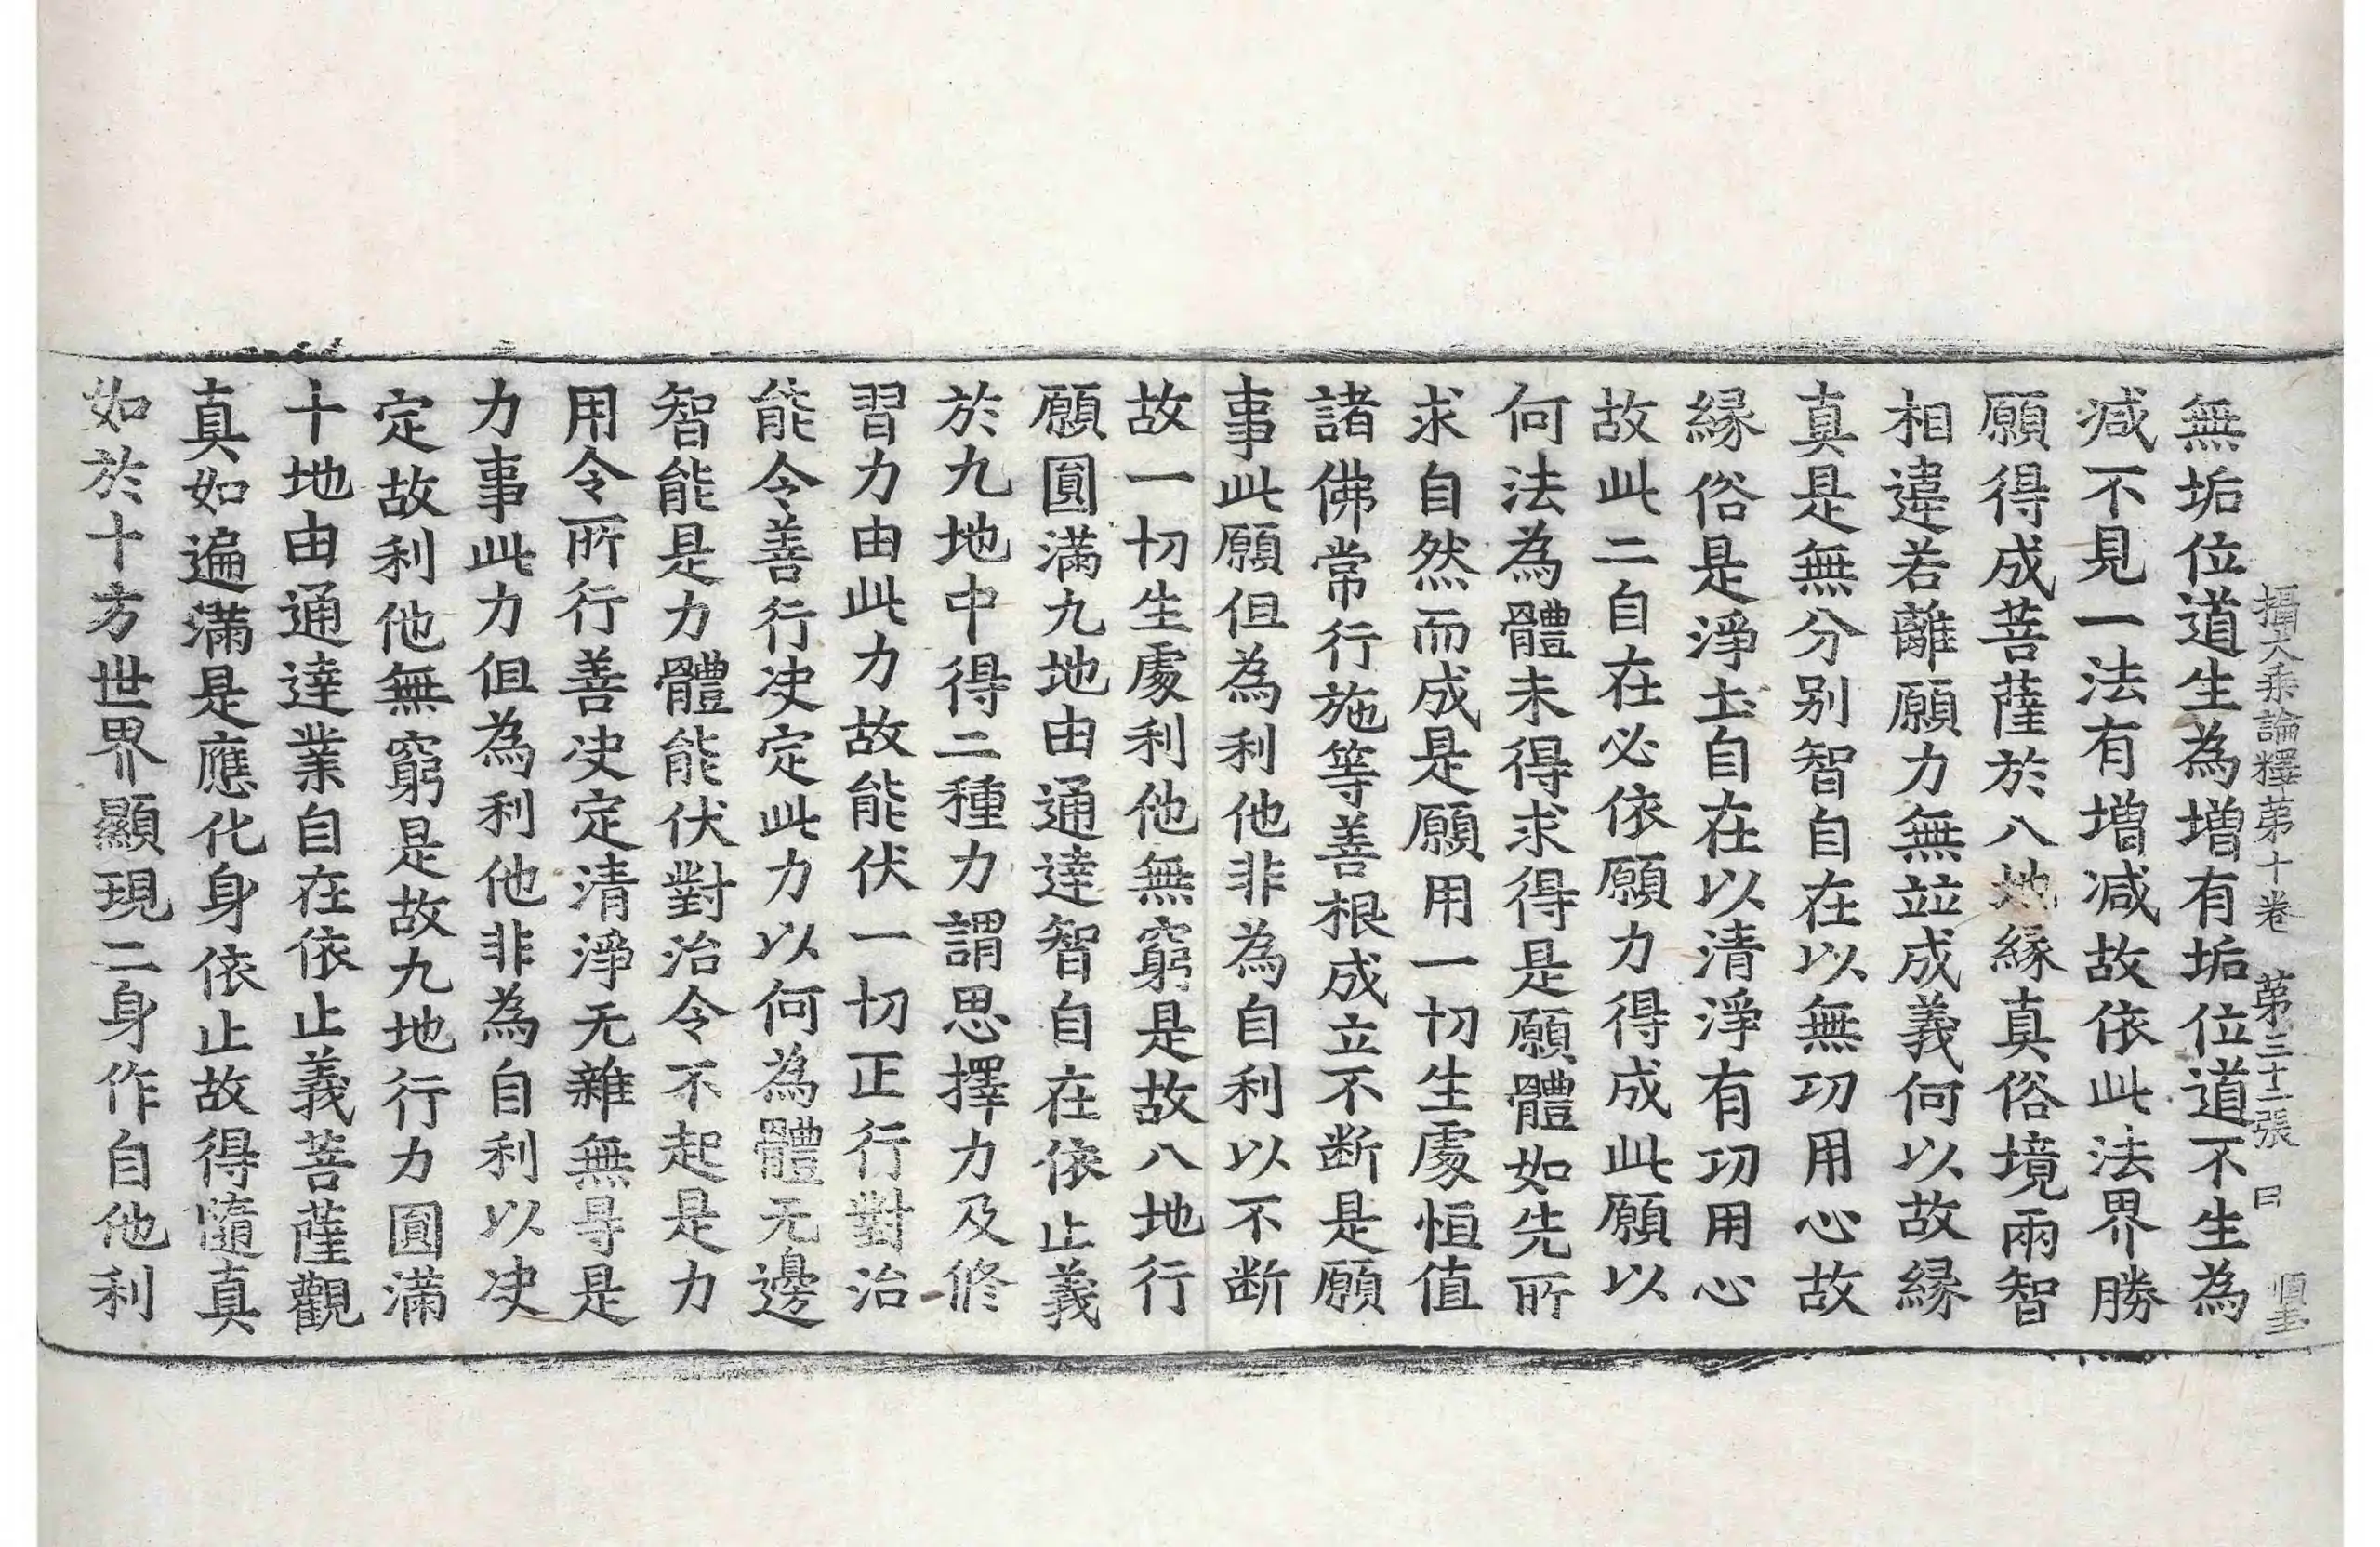 攝大乘論釋第十卷 第二十二張 曰
無垢位道生為增有垢位道不生為
減不見一法有增减故依此法界勝
願得成菩薩於八地緣真俗境兩智
相違若離願力無竝成義何以故緣
真是無分別智自在以無功用心故
緣俗是淨土自在以清淨有功用心
故此二自在必依願力得成此願以
何法為體未得求得是願體如先所
求自然而成是願用一切生處恒值
諸佛常行施等善根成立不断是願
事此願但為利他非為自利以不断
故一切生處利他無窮是故八地行
願圓滿九地由通達智自在依止義
於九地中得二種力謂思擇力及修
習力由此力故能伏一切正行對治
能令善行决定此力以何為體无邊
智能是力體能伏對治令不起是力
用令所行善决定清淨无雜無㝵是
力事此力但為利他非為自利以决
定故利他無窮是故九地行力圓滿
十地由通達業自在依止義菩薩觀
真如遍滿是應化身依止故得隨真
如於十方世界顯現二身作自他利